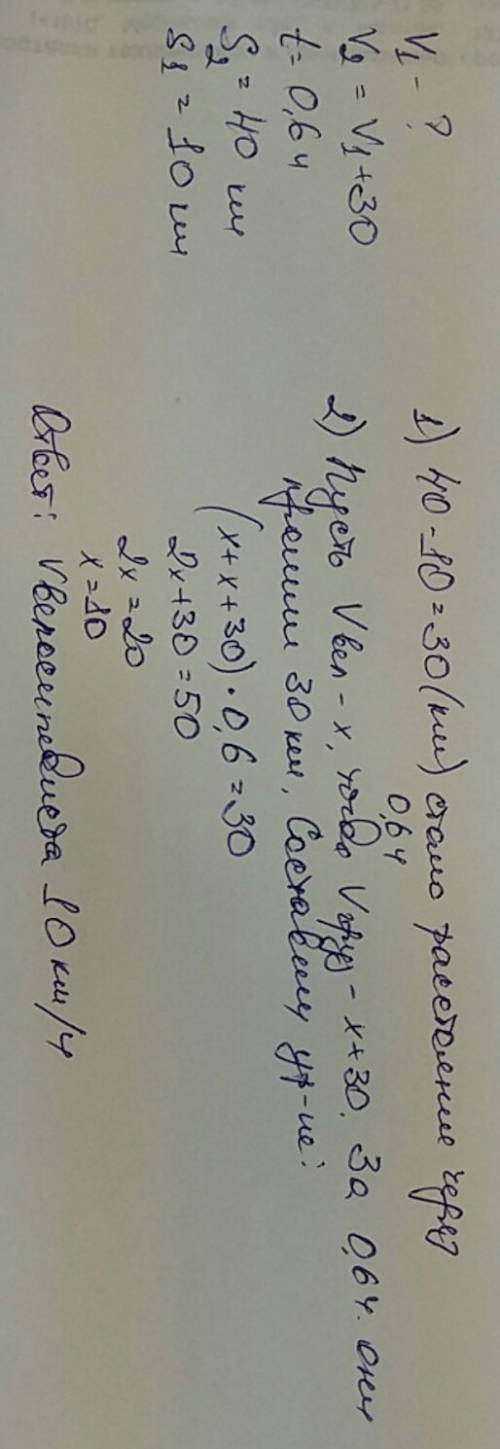 V1 - ?
V2 = V1 + 30
t = 0,6 ч
S2 = 40 км
S1 = 10 км
1) 40 - 10 = 30 (км) стало расстояние через
0,6 ч
2) Пусть Vвел - x, тогда Vгруз - x+30. За 0,6 ч. они
прошли 30 км, Составим ур-ие:
(x + x + 30) · 0,6 = 30
2x + 30 = 50
2x = 20
x = 10
Ответ: Vвелосипедиста 10 км/ч